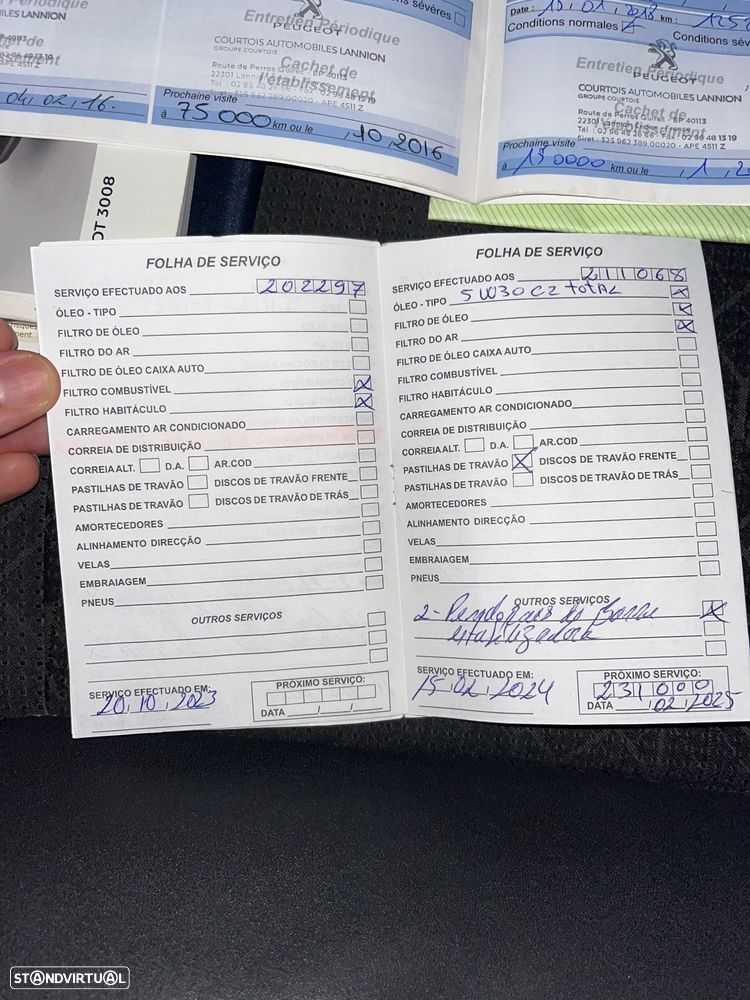 Entretien Périodique
PEUGEOT
COURTOIS AUTOMOBILES LANNION
GROUPE COURTOIS
Cachet de
l'établissement
Prochaine visite
à 75 000 km ou le 10, 2016
04, 02, 16.
Date : 15, 01, 2018 km :
Conditions normales
Entretien Périodique
PEUGEOT
COURTOIS AUTOMOBILES LANNION
GROUPE COURTOIS
Cachet de
Siret : 325 962 389 00020 - APE 4511 Z
Prochaine visite
à 150000 km ou le , 1 ,
3008
FOLHA DE SERVIÇO
SERVIÇO EFECTUADO AOS 202297
ÓLEO - TIPO
FILTRO DE ÓLEO
FILTRO DO AR
FILTRO DE ÓLEO CAIXA AUTO
FILTRO COMBUSTÍVEL X
FILTRO HABITÁCULO X
CARREGAMENTO AR CONDICIONADO
CORREIA DE DISTRIBUIÇÃO
CORREIA ALT. D.A. AR.COD
PASTILHAS DE TRAVÃO DISCOS DE TRAVÃO FRENTE
PASTILHAS DE TRAVÃO DISCOS DE TRAVÃO DE TRÁS
AMORTECEDORES
ALINHAMENTO DIRECÇÃO
VELAS
EMBRAIAGEM
PNEUS
OUTROS SERVIÇOS
SERVIÇO EFECTUADO EM:
20, 10, 2023
PRÓXIMO SERVIÇO:
DATA / /
FOLHA DE SERVIÇO
SERVIÇO EFECTUADO AOS 211068
ÓLEO - TIPO 5W30 C2 TOTAL X
FILTRO DE ÓLEO X
FILTRO DO AR X
FILTRO DE ÓLEO CAIXA AUTO
FILTRO COMBUSTÍVEL
FILTRO HABITÁCULO
CARREGAMENTO AR CONDICIONADO
CORREIA DE DISTRIBUIÇÃO
CORREIA ALT. D.A. AR.COD
PASTILHAS DE TRAVÃO X DISCOS DE TRAVÃO FRENTE
PASTILHAS DE TRAVÃO DISCOS DE TRAVÃO DE TRÁS
AMORTECEDORES
ALINHAMENTO DIRECÇÃO
VELAS
EMBRAIAGEM
PNEUS
OUTROS SERVIÇOS
2 - de Barra X
estabilizadora
SERVIÇO EFECTUADO EM:
15, 02, 2024
PRÓXIMO SERVIÇO:
231000
DATA 02, 2025
STANDVIRTUAL